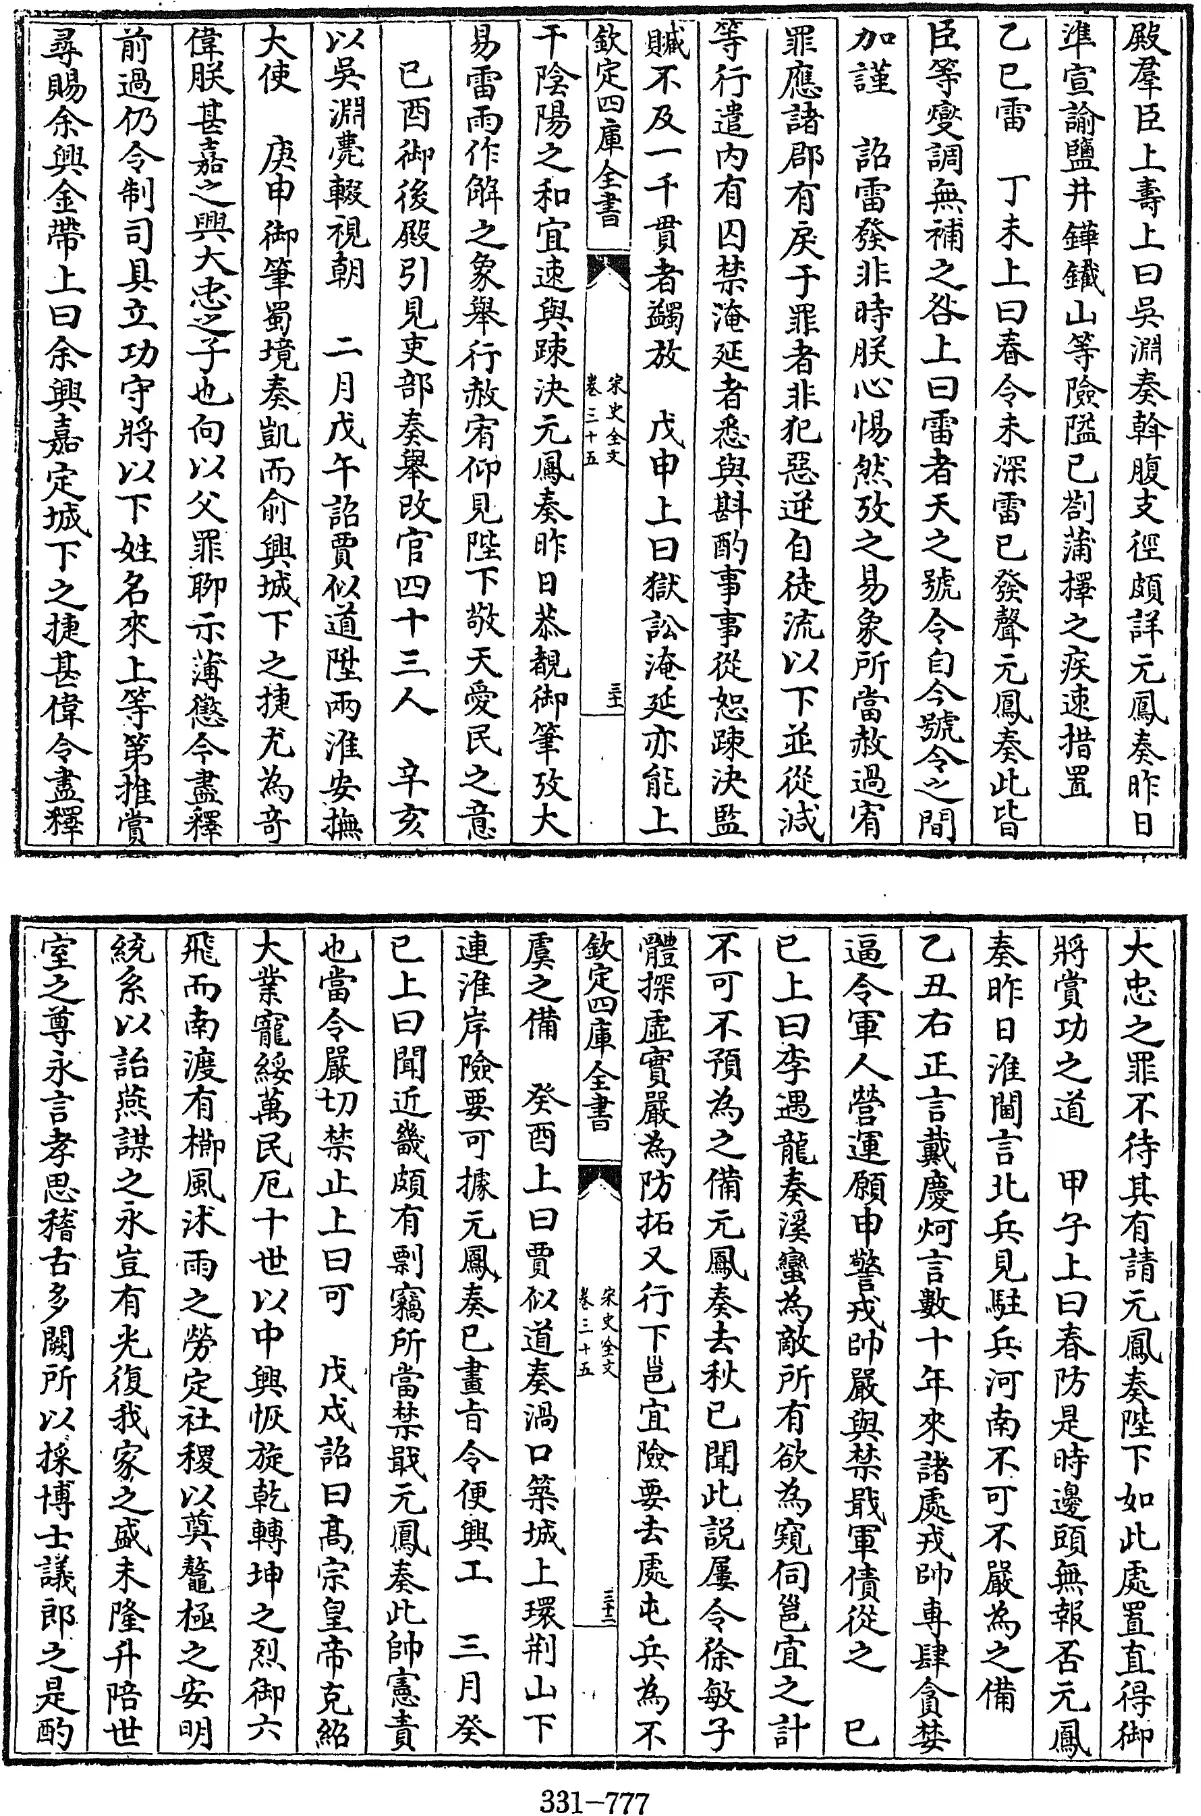 殿羣臣上壽上曰吳淵奏斡腹支徑頗詳元鳳奏昨日
準宣諭鹽井鏵鐵山等險隘已劄蒲擇之疾速措置
乙巳雷　丁未上曰春令未深雷已發聲元鳳奏此皆
臣等燮調無補之咎上曰雷者天之號令自今號令之間
加謹　詔雷發非時朕心惕然攷之易象所當赦過宥
罪應諸郡有戾于罪者非犯惡逆自徒流以下並從減
等行遣内有囚禁淹延者悉與斟酌事事從恕踈決監
贓不及一千貫者蠲放　戊申上曰獄訟淹延亦能上
欽定四庫全書
宋史全文
卷三十五
三十一
干陰陽之和宜速與踈決元鳳奏昨日恭覩御筆攷大
易雷雨作解之象舉行赦宥仰見陛下敬天愛民之意
已酉御後殿引見吏部奏舉改官四十三人　辛亥
以吳淵薨輟視朝　二月戊午詔賈似道陞兩淮安撫
大使　庚申御筆蜀境奏凱而俞興城下之捷尤為竒
偉朕甚嘉之興大忠之子也向以父罪聊示薄懲今盡釋
前過仍令制司具立功守將以下姓名來上等第推賞
尋賜余興金帶上曰余興嘉定城下之捷甚偉令盡釋
大忠之罪不待其有請元鳳奏陛下如此處置直得御
將賞功之道　甲子上曰春防是時邊頭無報否元鳳
奏昨日淮閫言北兵見駐兵河南不可不嚴為之備
乙丑右正言戴慶炣言數十年來諸處戎帥專肆貪婪
逼令軍人營運願申警戎帥嚴與禁戢軍債從之　已
已上曰李遇龍奏溪蠻為敵所有欲為窺伺邕宜之計
不可不預為之備元鳳奏去秋已聞此説屢令徐敏子
體探虛實嚴為防拓又行下邕宜險要去處屯兵為不
欽定四庫全書
宋史全文
卷三十五
三十二
虞之備　癸酉上曰賈似道奏渦口築城上環荆山下
連淮岸險要可據元鳳奏已畫㫖令便興工　三月癸
已上曰聞近畿頗有剽竊所當禁戢元鳳奏此帥憲責
也當令嚴切禁止上曰可　戊戌詔曰髙宗皇帝克紹
大業寵綏萬民厄十世以中興恢旋乾轉坤之烈御六
飛而南渡有櫛風沐雨之勞定社稷以奠鼇極之安明
統系以詒燕謀之永豈有光復我家之盛未隆升陪世
室之尊永言孝思稽古多闕所以採博士議郎之是酌
331-777